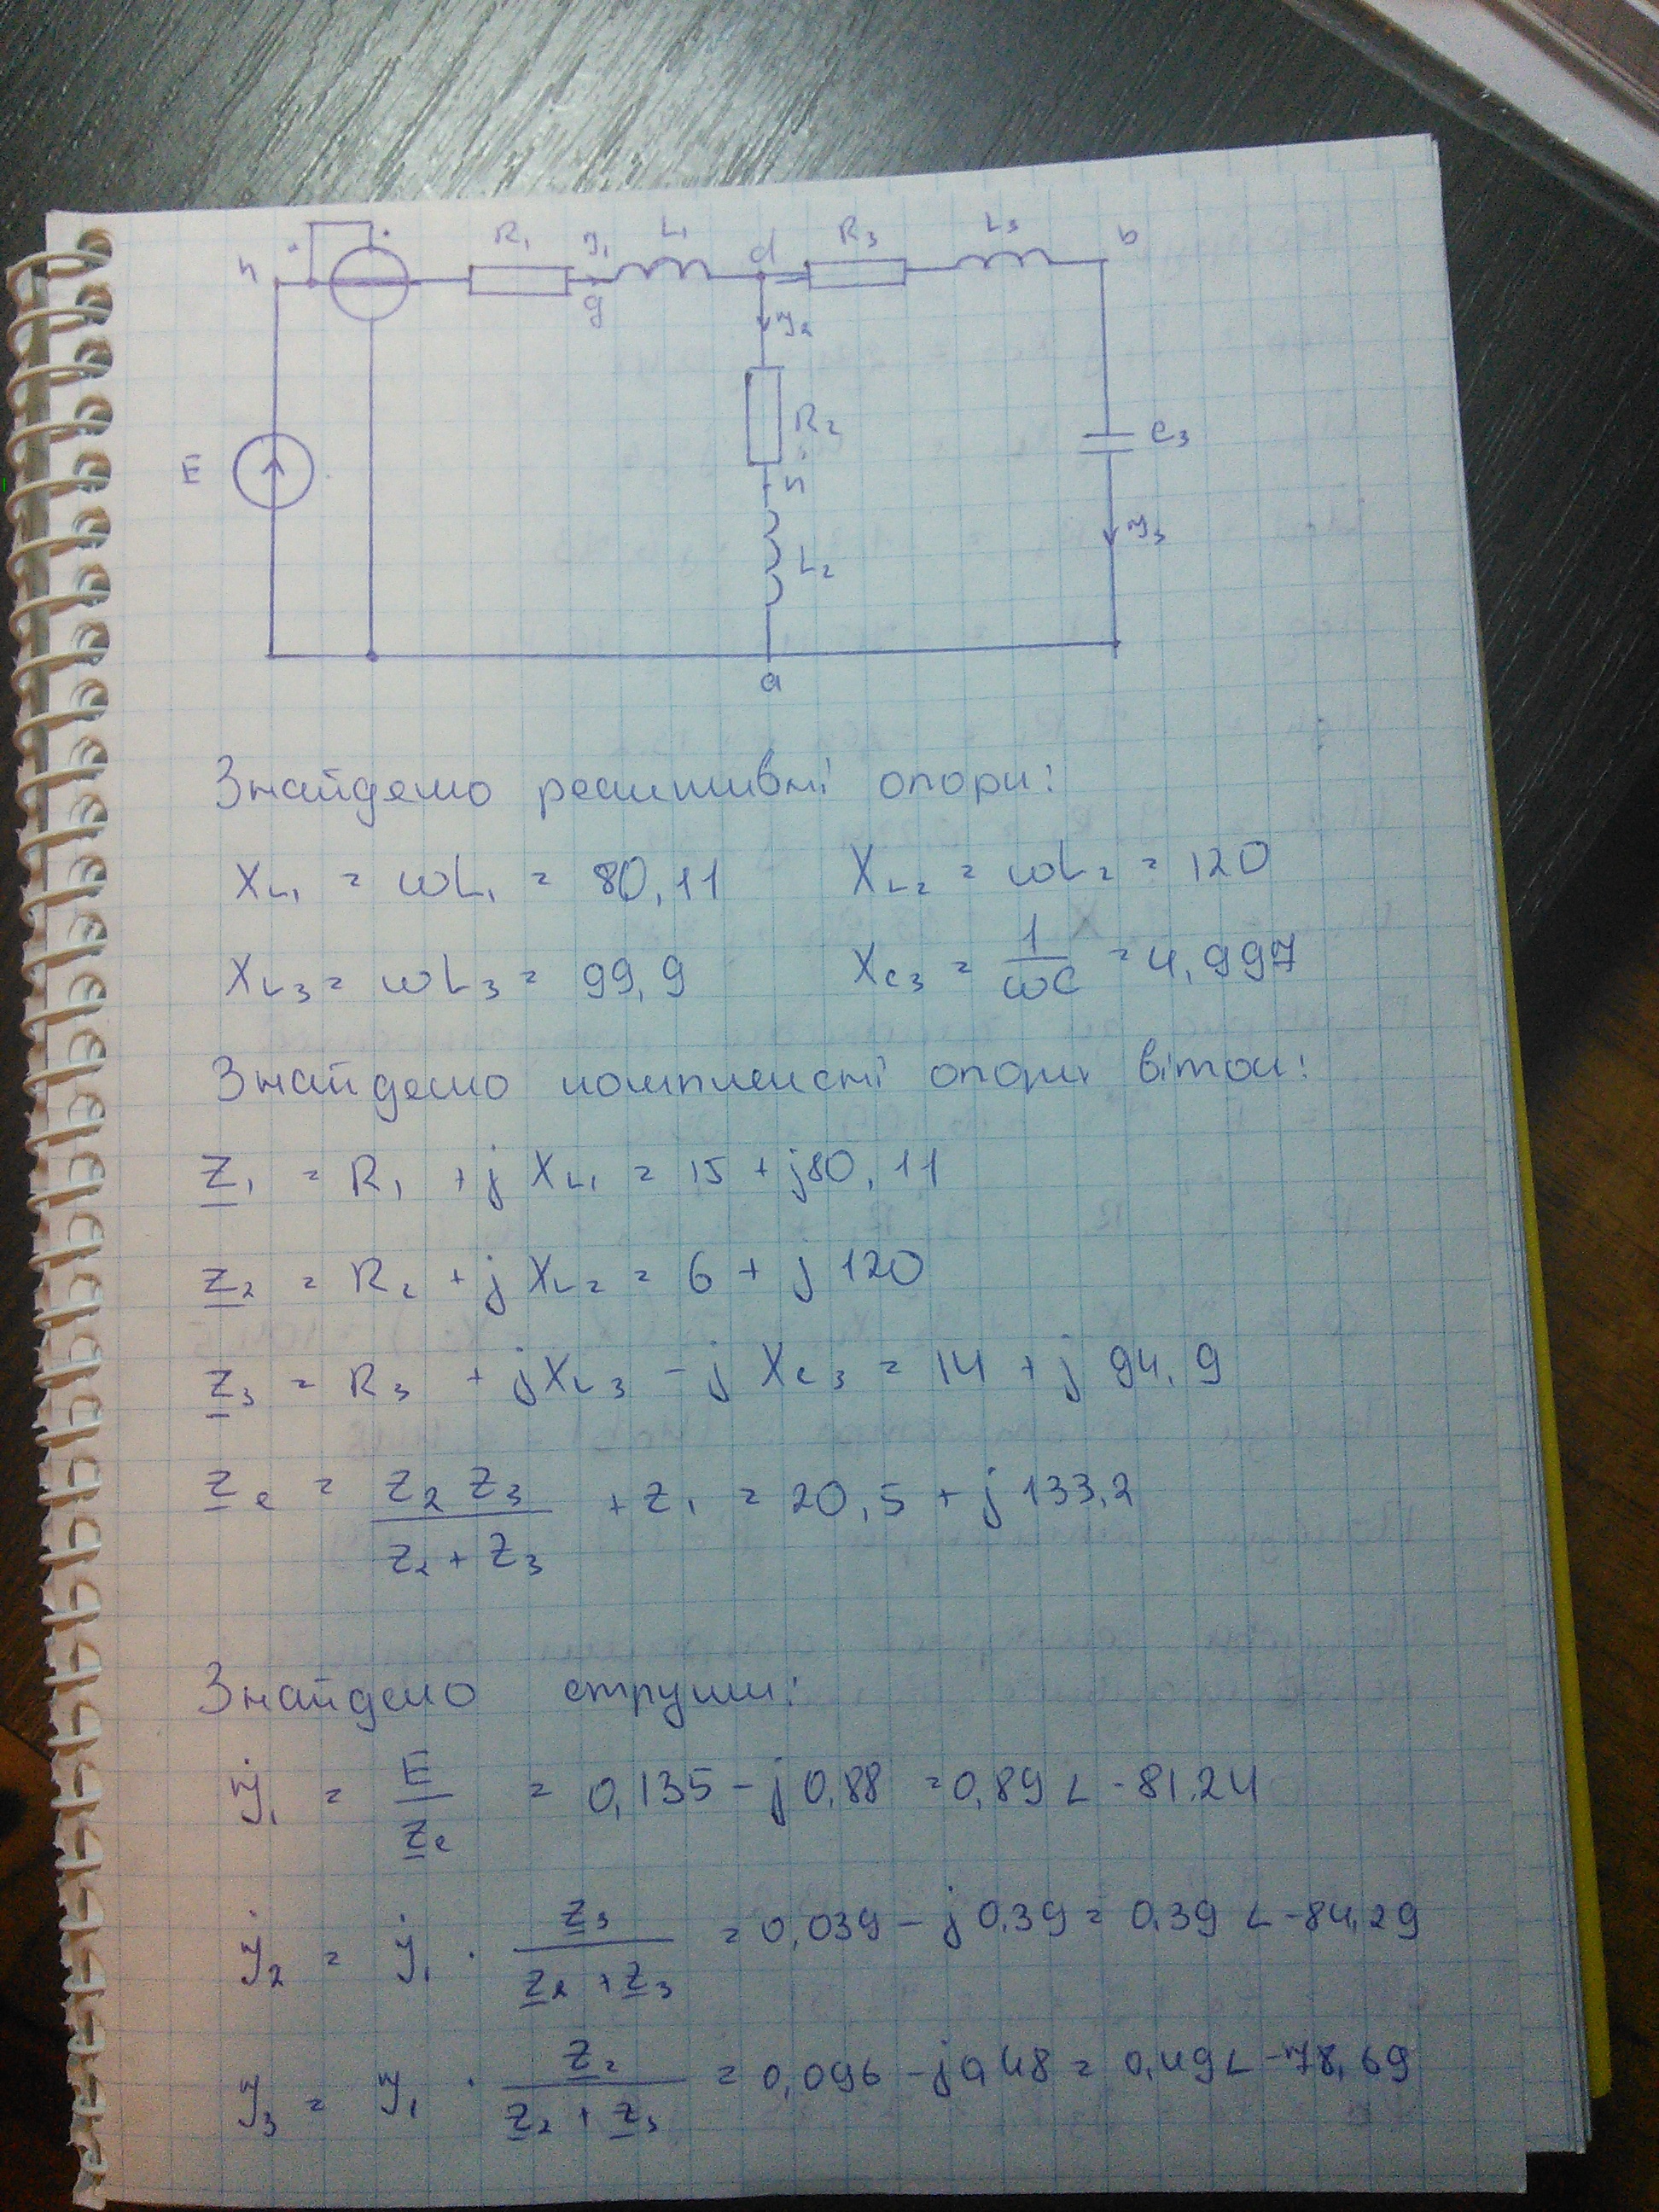 R₁ J₁ L₁ d R₃ L₃ b
n
g
J₂
R₂
C₃
E
n
J₃
L₂
a
Знайдемо реактивні опори:
X_L₁ = ωL₁ = 80,11 X_L₂ = ωL₂ = 120
X_L₃ = ωL₃ = 99,9 X_C₃ = 1/ωC = 4,997
Знайдемо комплексні опори віток:
Z₁ = R₁ + jX_L₁ = 15 + j80,11
Z₂ = R₂ + jX_L₂ = 6 + j120
Z₃ = R₃ + jX_L₃ - jX_C₃ = 14 + j94,9
Z_e = Z₂Z₃/(Z₂+Z₃) + Z₁ = 20,5 + j133,2
Знайдемо струми:
J̇₁ = E/Z_e = 0,135 - j0,88 = 0,89∠-81.24
J̇₂ = J̇₁ · Z₃/(Z₂+Z₃) = 0,039 - j0,39 = 0,39∠-84,29
J₃ = J₁ · Z₂/(Z₂+Z₃) = 0,096 - j0,48 = 0,49∠-78,69